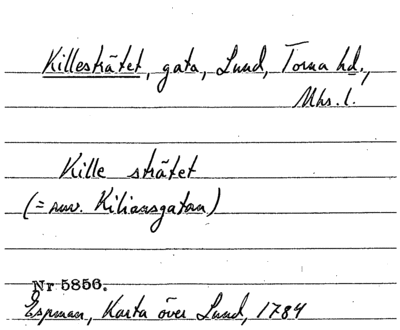 Killesträtet, gata, Lund, Torna hd.,
Mhs. l.
Kille strätet
(= nuv. Kiliansgatan)
Nr 5856.
Espman, Karta över Lund, 1784